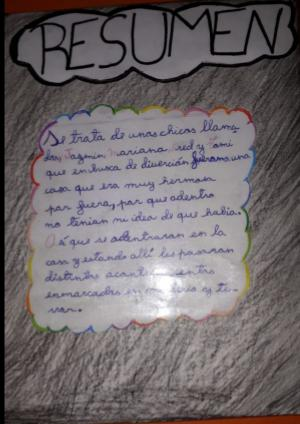 RESUMEN
Se trata de unas chicas llama
das Jazmin Mariana red y Romi
que en busca de diversión fueron a una
casa que era muy hermosa
por fuera, por que adentro
no tenian ni idea de que habia.
Asi que se adentraron en la
casa y estando allí les pasaran
distintos acontecimientos
enmarcados en misterio y te-
rror.